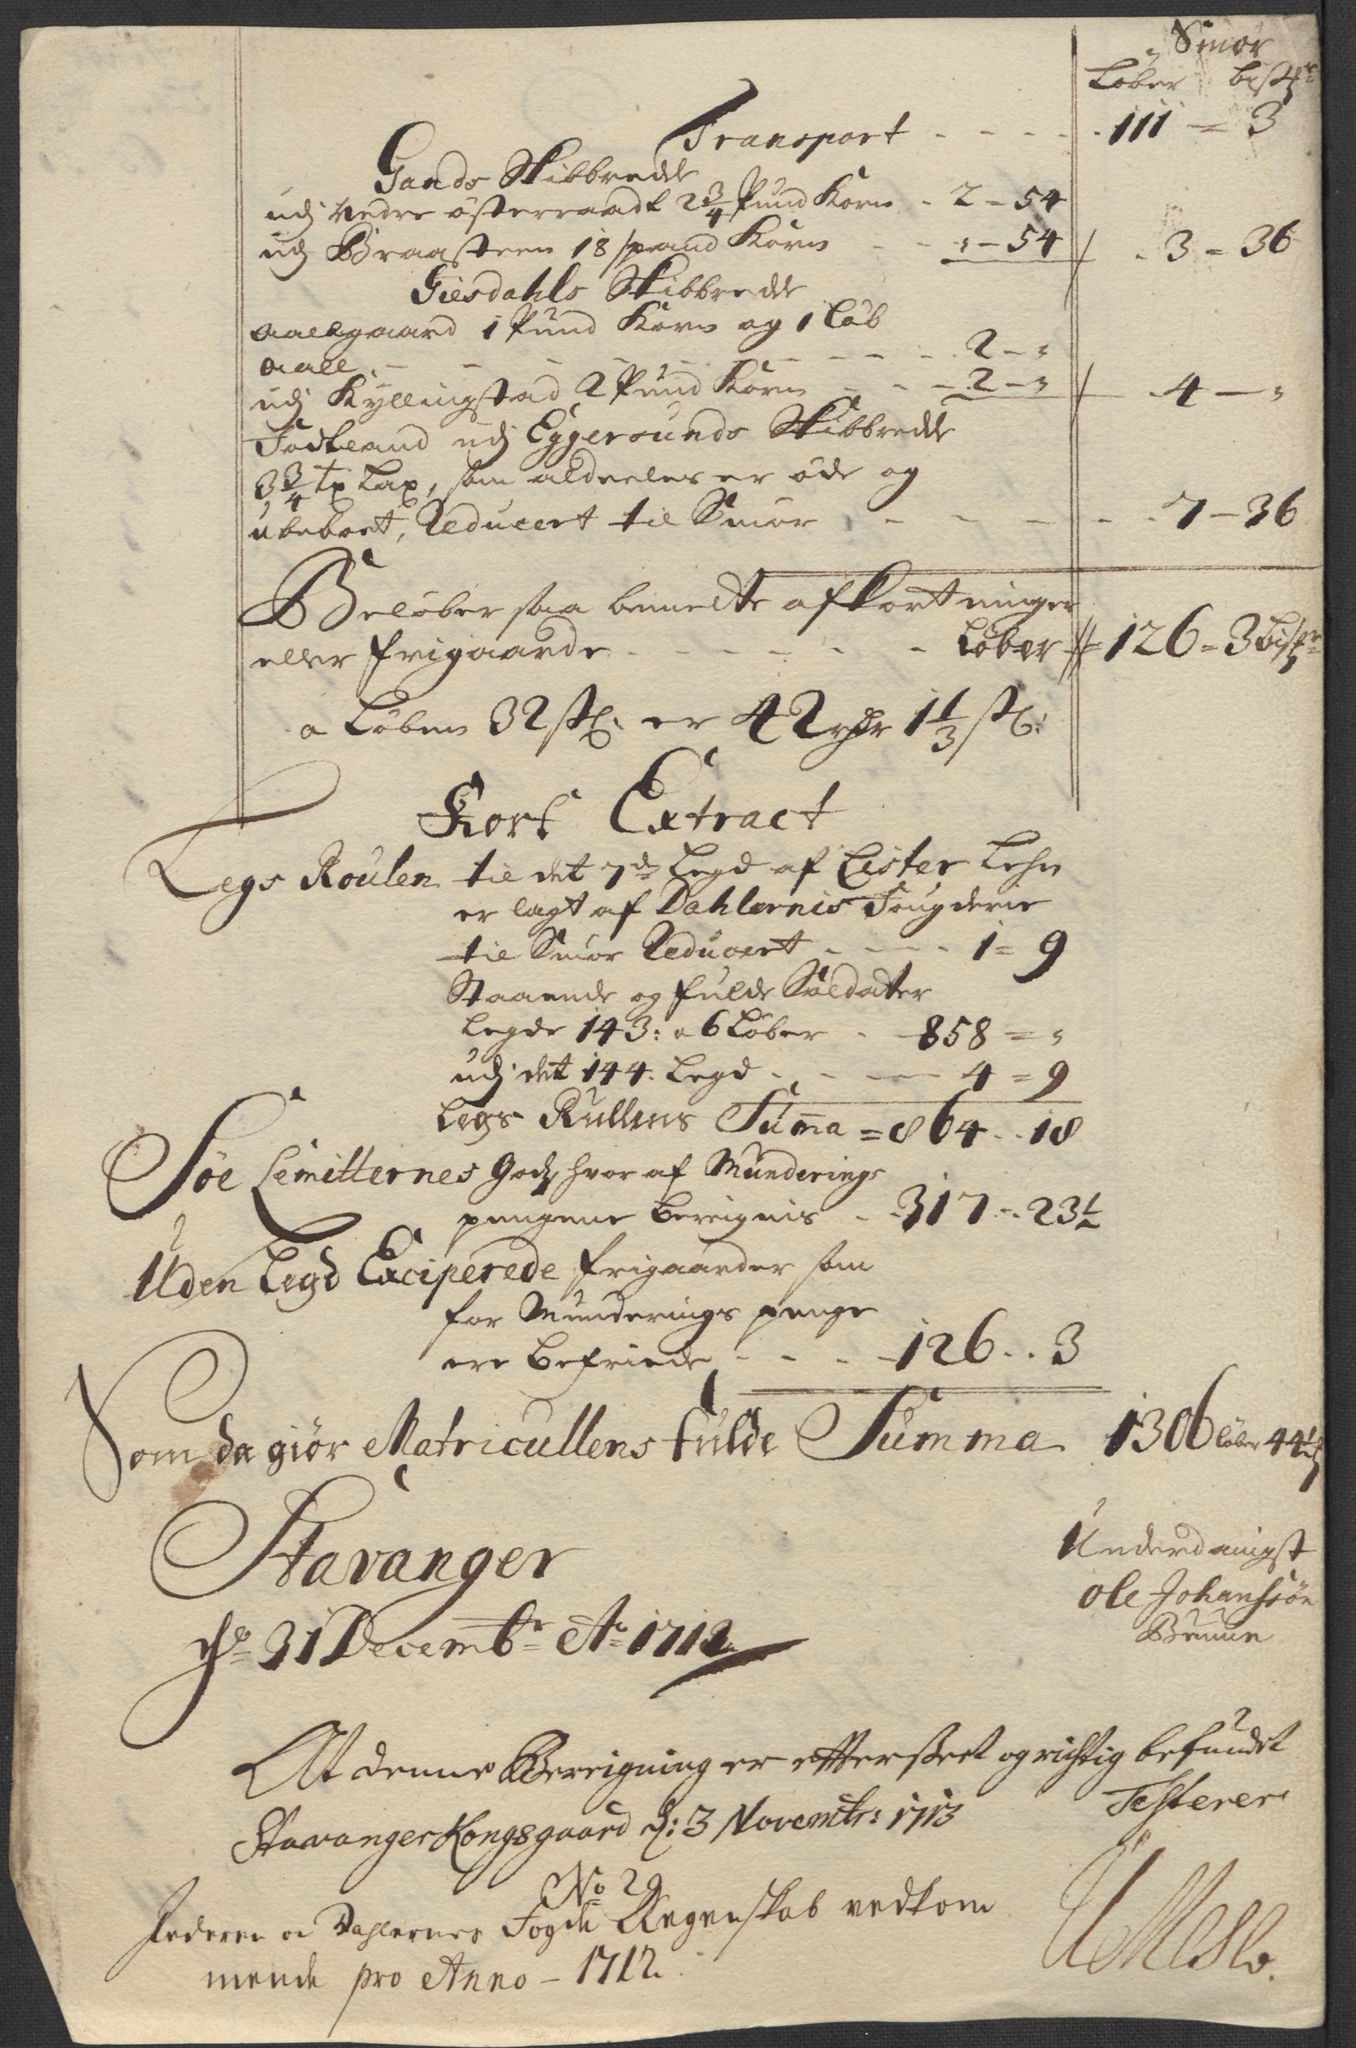 Smør
Løber bisp
Transport - - - - - 111 = 3
Gands Skibbrede
udj Nedre østerraadt 2 3/4 Pund Korn - 2 - 54
udj Braasteen 18 spand Korn - - - „ - 54 / - 3 - 36
Giesdahls Skibbrede
Aalgaard 1 Pund Korn og 1 Løb
aall - - - - - - - - 2 - „
udj Kyllingstad 2 Pund Korn - - - 2 - „ / 4 - „
Fodland udj Eggersunds Skibbrede
3 3/4 tr Lax, som aldeeles er øde og
ubeboet, Reducert til Smør - - - - - 7 - 36
Beløber saa bemelte afkortninger
eller frigaarde - - - - - - Løber // 126 = 3 bisp
a Løben 32 sk. er 42 rdr 1 1/3 sk:
Kort Extract
Legs Roulen til det 7de Legd af Lister Lehn
er lagt af Dahlernis Fougderie
til Smør Reducert - - - - 1 = 9
Staaende og fulde Soldater
Legde 143: a 6 Løber - - 858 = „
udj det 144. Legd - - - - 4 = 9
Legs Rullens Summa = 864 - - 18
Søe Lemitternes Gods, hvor af Munderings
pengene bereignis - - 317 - - 23 1/2
Uden Legd Exciperede frigaarder som
for Munderings penge
ere befriede - - - - 126 - - 3
Som da giør Matricullens fulde Summa 1306 Løber 44 1/2
Stavanger
ds 31 Decembr Ao 1712
Underdanigst
Ole Johanssøn
At denne Bereigning er efterseet og rigtig befundet
Testerer
Stavanger Kongsgaard d: 3 Novembr: 1713
No 29
Jederen oc Dahlernes Fogde Regenskab vedkom
mende pro Anno - 1712